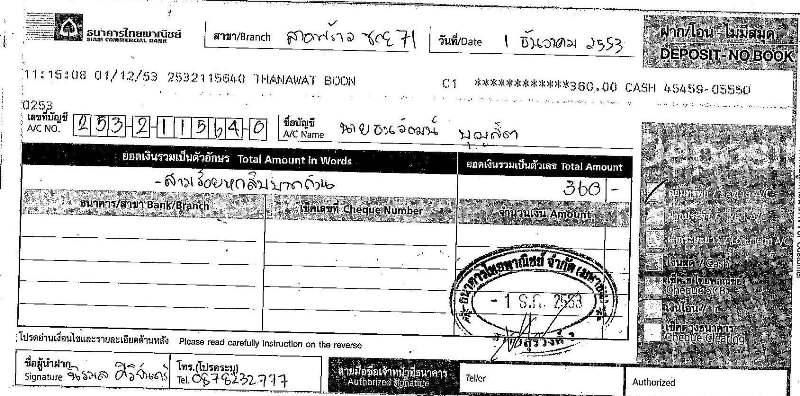 ธนาคารไทยพาณิชย์
SIAM COMMERCIAL BANK
สาขา/Branch ลาดพร้าว ซอย 71
วันที่/Date 1 ธันวาคม 2553
ฝาก/โอน ไม่มีสมุด
DEPOSIT-NO BOOK
11:15:08 01/12/53 2532115640 THANAWAT BOON C1 ************360.00 CASH 45459-05550
0253
เลขที่บัญชี
A/C NO. 253-2-11564-0
ชื่อบัญชี
A/C Name นายธนวัฒน์
ยอดเงินรวมเป็นตัวอักษร Total Amount in Words
ยอดเงินรวมเป็นตัวเลข Total Amount
-สามร้อยหกสิบบาทถ้วน
360 -
ธนาคาร/สาขา Bank/Branch
เช็คเลขที่ Cheque Number
จำนวนเงิน Amount
Deposit
ธนาคารไทยพาณิชย์ จำกัด (มหาชน)
- 1 ธ.ค. 2553
โปรดอ่านเงื่อนไขและรายละเอียดด้านหลัง Please read carefully instruction on the reverse
เงินโอน
เช็คต่างธนาคาร
Cheque Clearing
ชื่อผู้นำฝาก
Signature นิรมล
โทร.(โปรดระบุ)
Tel. 0878232777
ลายมือชื่อเจ้าหน้าที่ธนาคาร
Authorized Signature
Teller
Authorized